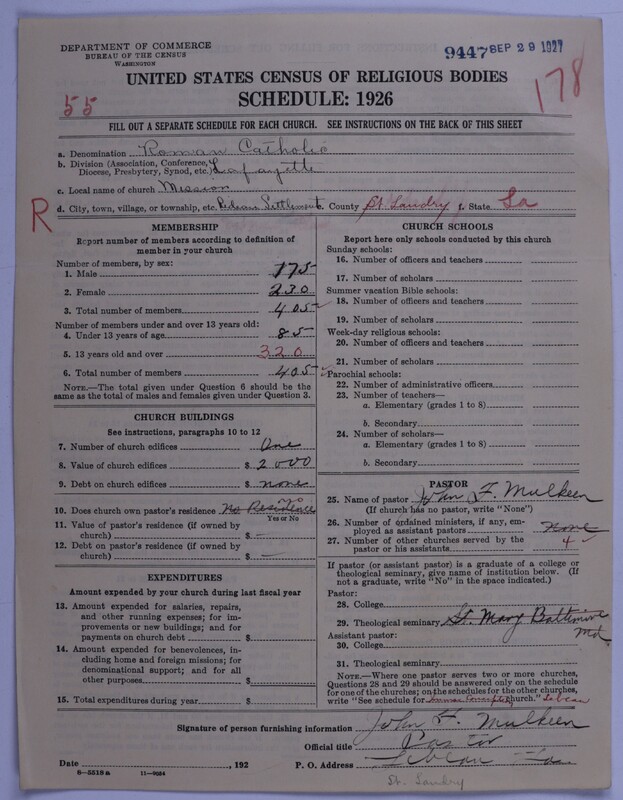 DEPARTMENT OF COMMERCE
BUREAU OF THE CENSUS
WASHINGTON
9447 SEP 29 1927
UNITED STATES CENSUS OF RELIGIOUS BODIES
SCHEDULE: 1926
55
178
FILL OUT A SEPARATE SCHEDULE FOR EACH CHURCH. SEE INSTRUCTIONS ON THE BACK OF THIS SHEET
a. Denomination Roman Catholic
b. Division (Association, Conference, Diocese, Presbytery, Synod, etc.) Lafayette
c. Local name of church Mission
R
d. City, town, village, or township, etc. Settlement e. County St. Landry f. State La
MEMBERSHIP
Report number of members according to definition of member in your church
Number of members, by sex:
1. Male 175
2. Female 230
3. Total number of members 405
Number of members under and over 13 years old:
4. Under 13 years of age 85
5. 13 years old and over 320
6. Total number of members 405
NOTE.—The total given under Question 6 should be the same as the total of males and females given under Question 3.
CHURCH BUILDINGS
See instructions, paragraphs 10 to 12
7. Number of church edifices One
8. Value of church edifices $ 2000
9. Debt on church edifices $ none
10. Does church own pastor's residence No Residence no
Yes or No
11. Value of pastor's residence (if owned by church) $ —
12. Debt on pastor's residence (if owned by church) $ —
EXPENDITURES
Amount expended by your church during last fiscal year
13. Amount expended for salaries, repairs, and other running expenses; for improvements or new buildings; and for payments on church debt $
14. Amount expended for benevolences, including home and foreign missions; for denominational support; and for all other purposes $
15. Total expenditures during year $
CHURCH SCHOOLS
Report here only schools conducted by this church
Sunday schools:
16. Number of officers and teachers
17. Number of scholars
Summer vacation Bible schools:
18. Number of officers and teachers
19. Number of scholars
Week-day religious schools:
20. Number of officers and teachers
21. Number of scholars
Parochial schools:
22. Number of administrative officers
23. Number of teachers—
a. Elementary (grades 1 to 8)
b. Secondary
24. Number of scholars—
a. Elementary (grades 1 to 8)
b. Secondary
PASTOR
25. Name of pastor John F. Mulkeen
(If church has no pastor, write "None")
26. Number of ordained ministers, if any, employed as assistant pastors none
27. Number of other churches served by the pastor or his assistants 4
If pastor (or assistant pastor) is a graduate of a college or theological seminary, give name of institution below. (If not a graduate, write "No" in the space indicated.)
Pastor:
28. College
29. Theological seminary St. Mary Baltimore Md
Assistant pastor:
30. College
31. Theological seminary
NOTE.—Where one pastor serves two or more churches, Questions 28 and 29 should be answered only on the schedule for one of the churches; on the schedules for the other churches, write "See schedule for church." Lebeau
Signature of person furnishing information John F. Mulkeen
Official title Pastor
Date , 192 P. O. Address Lebeau La.
8—5519a 11—9024
St. Landry